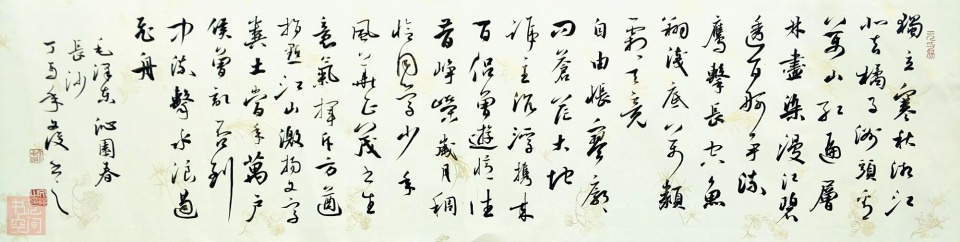 獨立寒秋湘江
北去橘子洲頭看
萬山紅遍層
林盡染漫江碧
透百舸爭流
鷹擊長空魚
翔淺底萬類
霜天競
自由悵寥廓
問蒼茫大地
誰主沉浮攜來
百侶曾遊憶往
昔崢嶸歲月稠
恰同學少年
風華正茂書生
意氣揮斥方遒
指點江山激揚文字
糞土當年萬戶
侯曾記否到
中流擊水浪遏
飛舟
毛澤東沁園春
長沙
丁亥年文 書之